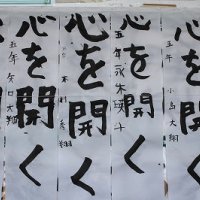 心を開く
五年 小島大翔
心を開く
五年 永木瑛斗
心を開く
木村
心を開く
五年 矢口大翔